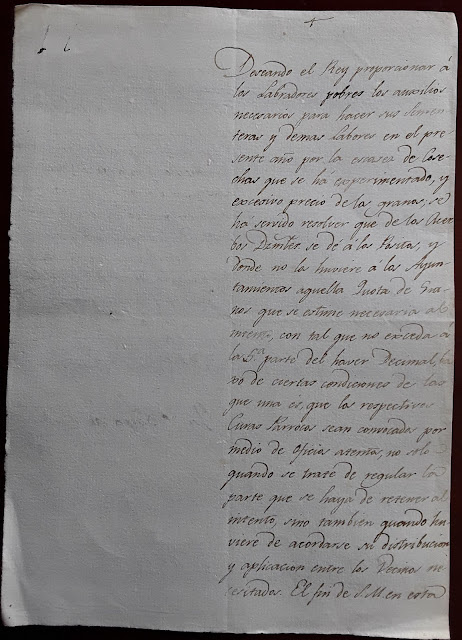 Deseando el Rey proporcionar á
los Labradores pobres los auxilios
necesarios para hacer sus Semen
teras y demas labores en el pre
sente año por la escasez de Cose-
chas que se há experimentado, y
excesivo precio de los granos, se
há servido resolver que de los Acer
bos Decimles se dé á los Positos, y
donde no los huviere á los Ayun
tamientos aquella Quota de Gra
nos que se estime necesaria al
intento, con tal que no exceda á
la 5.ª parte del haver Decimal, ba
xo de ciertas condiciones de las
que una es, que los respectivos
Curas Parrocos sean convocados por
medio de oficios atentos, no solo
quando se trate de regular la
parte que se haya de retener al
intento, sino tambien quando hu
viere de acordarse su distribucion
y aplicacion entre los Vecinos ne
cesitados. El fin de S.M. en esta